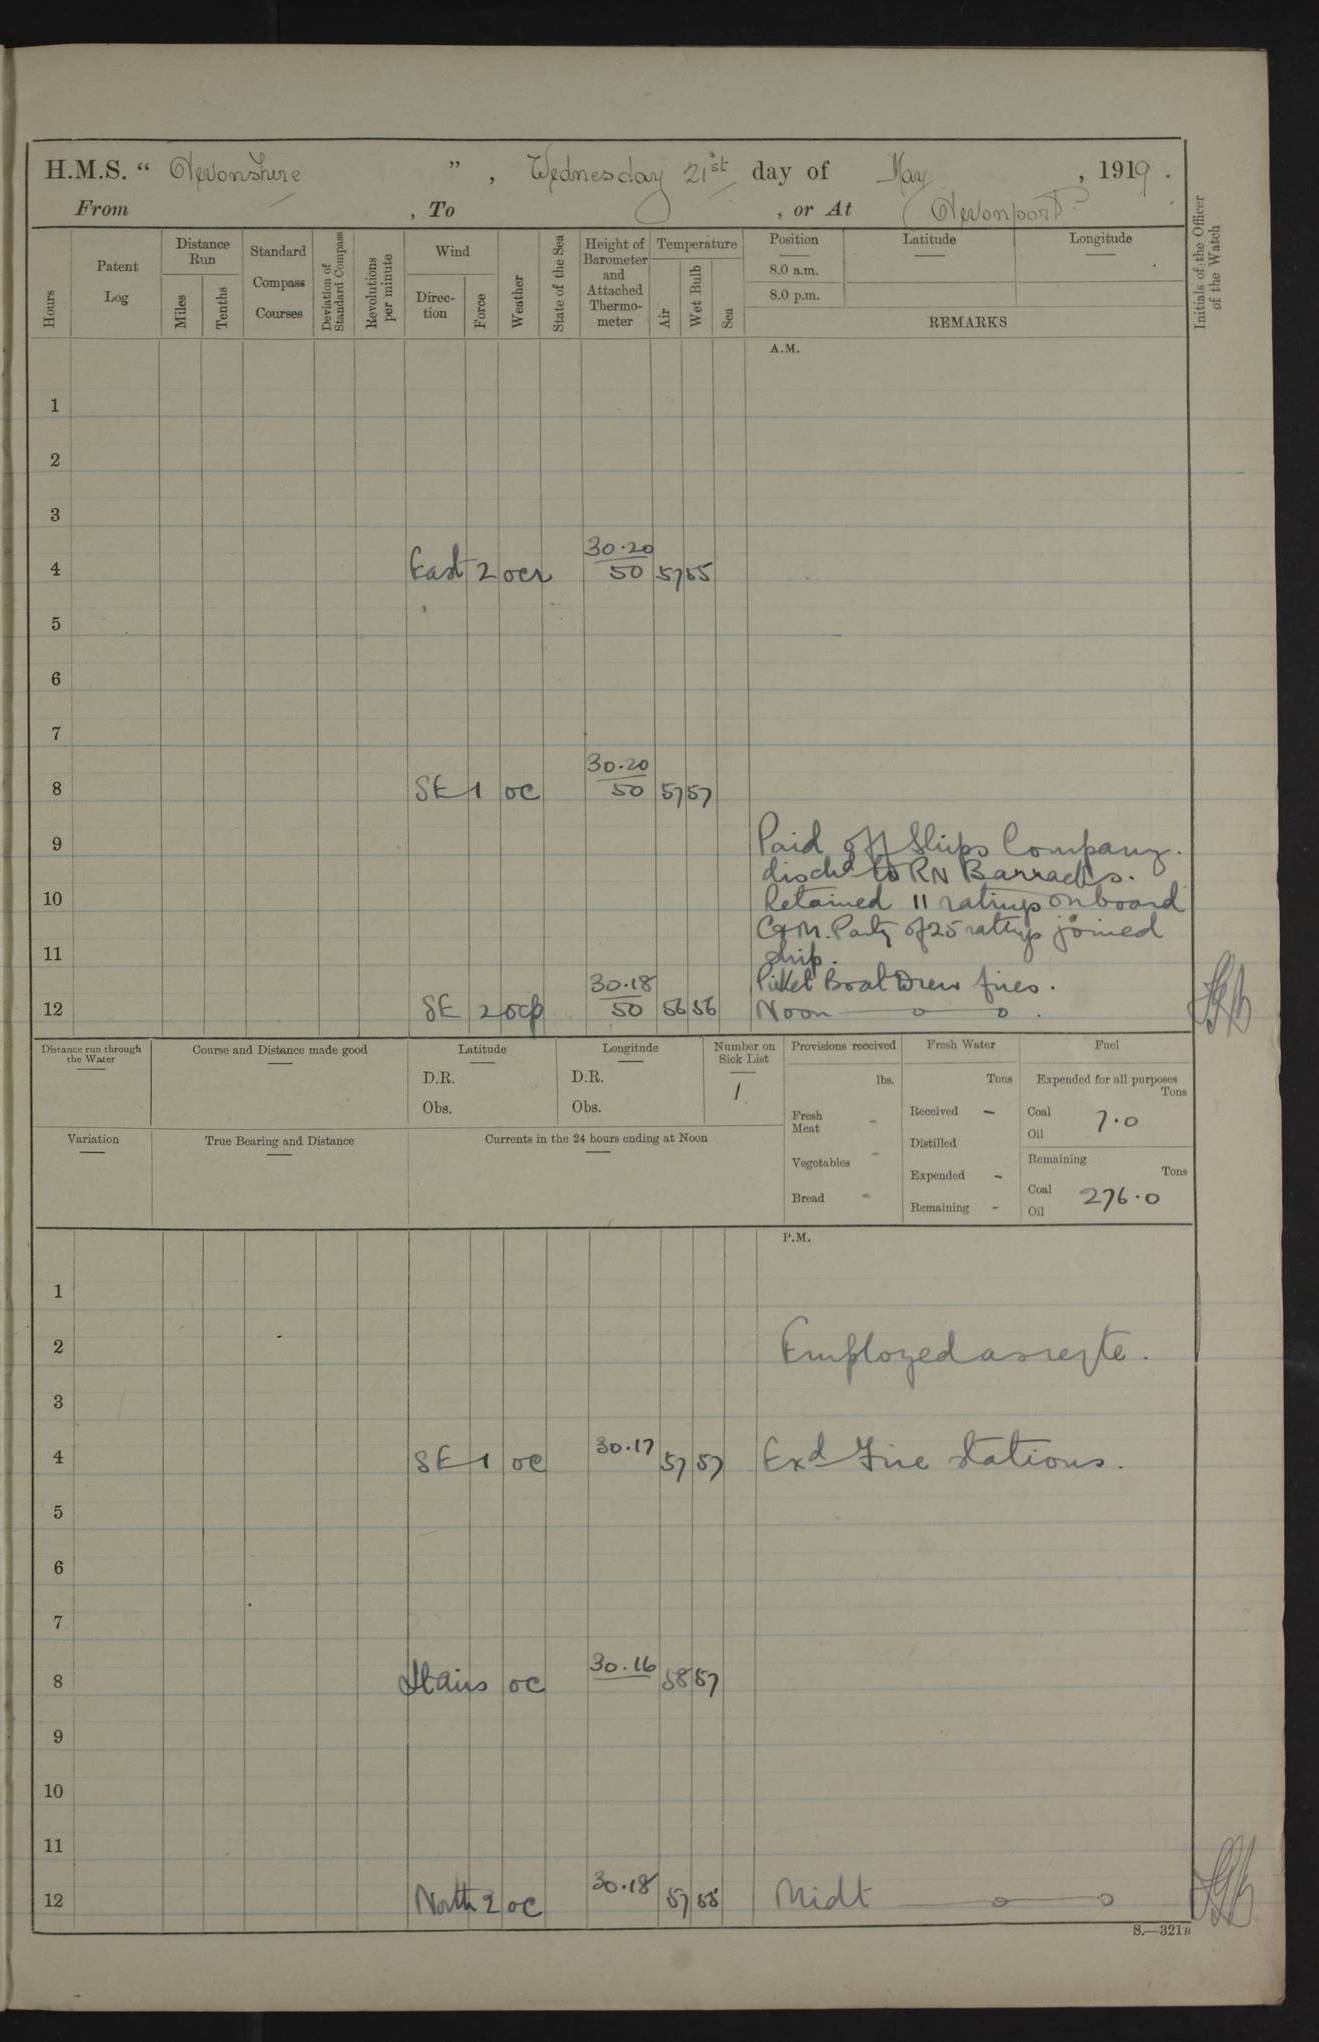 H.M.S. “ Devonshire ” , Wednesday 21st day of May , 1919 .
From , To , or At Devonport
Hours
Patent Log
Distance Run
Miles
Tenths
Standard Compass Courses
Deviation of Standard Compass
Revolutions per minute
Wind
Direc-tion
Force
Weather
State of the Sea
Height of Barometer and Attached Thermo-meter
Temperature
Air
Wet Bulb
Sea
Position
8.0 a.m.
8.0 p.m.
Latitude
Longitude
REMARKS
Initials of the Officer of the Watch
A.M.
1
2
3
30.20
4 East 2 ocr 50 57 55
5
6
7
30.20
8 SE 1 oc 50 57 57
9 Paid off Ships Company.
dischd to RN Barracks.
10 Retained 11 ratings onboard
C & M. Party of 25 ratings joined
11 ship.
30.18 Picket Boat Drew fires.
12 SE 2 ocp 50 56 56 Noon
Distance run through the Water
Course and Distance made good
Latitude
D.R.
Obs.
Longitude
D.R.
Obs.
Number on Sick List
1
Provisions received
lbs.
Fresh Meat -
Vegetables -
Bread -
Fresh Water
Tons
Received -
Distilled
Expended -
Remaining -
Fuel
Expended for all purposes
Tons
Coal 7.0
Oil
Remaining
Tons
Coal 276.0
Oil
Variation
True Bearing and Distance
Currents in the 24 hours ending at Noon
P.M.
1
2 Employed as reqte.
3
4 SE 1 oc 30.17 57 57 Exd Fire Stations.
5
6
7
8 Airs oc 30.16 58 57
9
10
11
12 North 2 oc 30.18 57 55 Midt
S.—321B